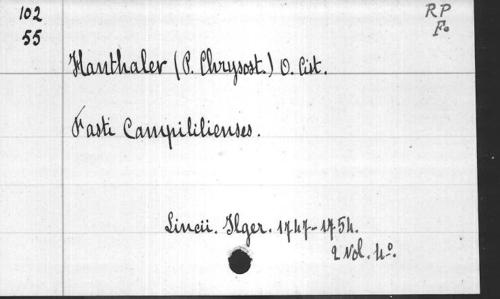 102
55
RP
Fo
Hanthaler (P. Chrysost.) O. Cist.
Fasti Campililienses.
Lincii. Ilger. 1747-1754.
2 vol. 4o.